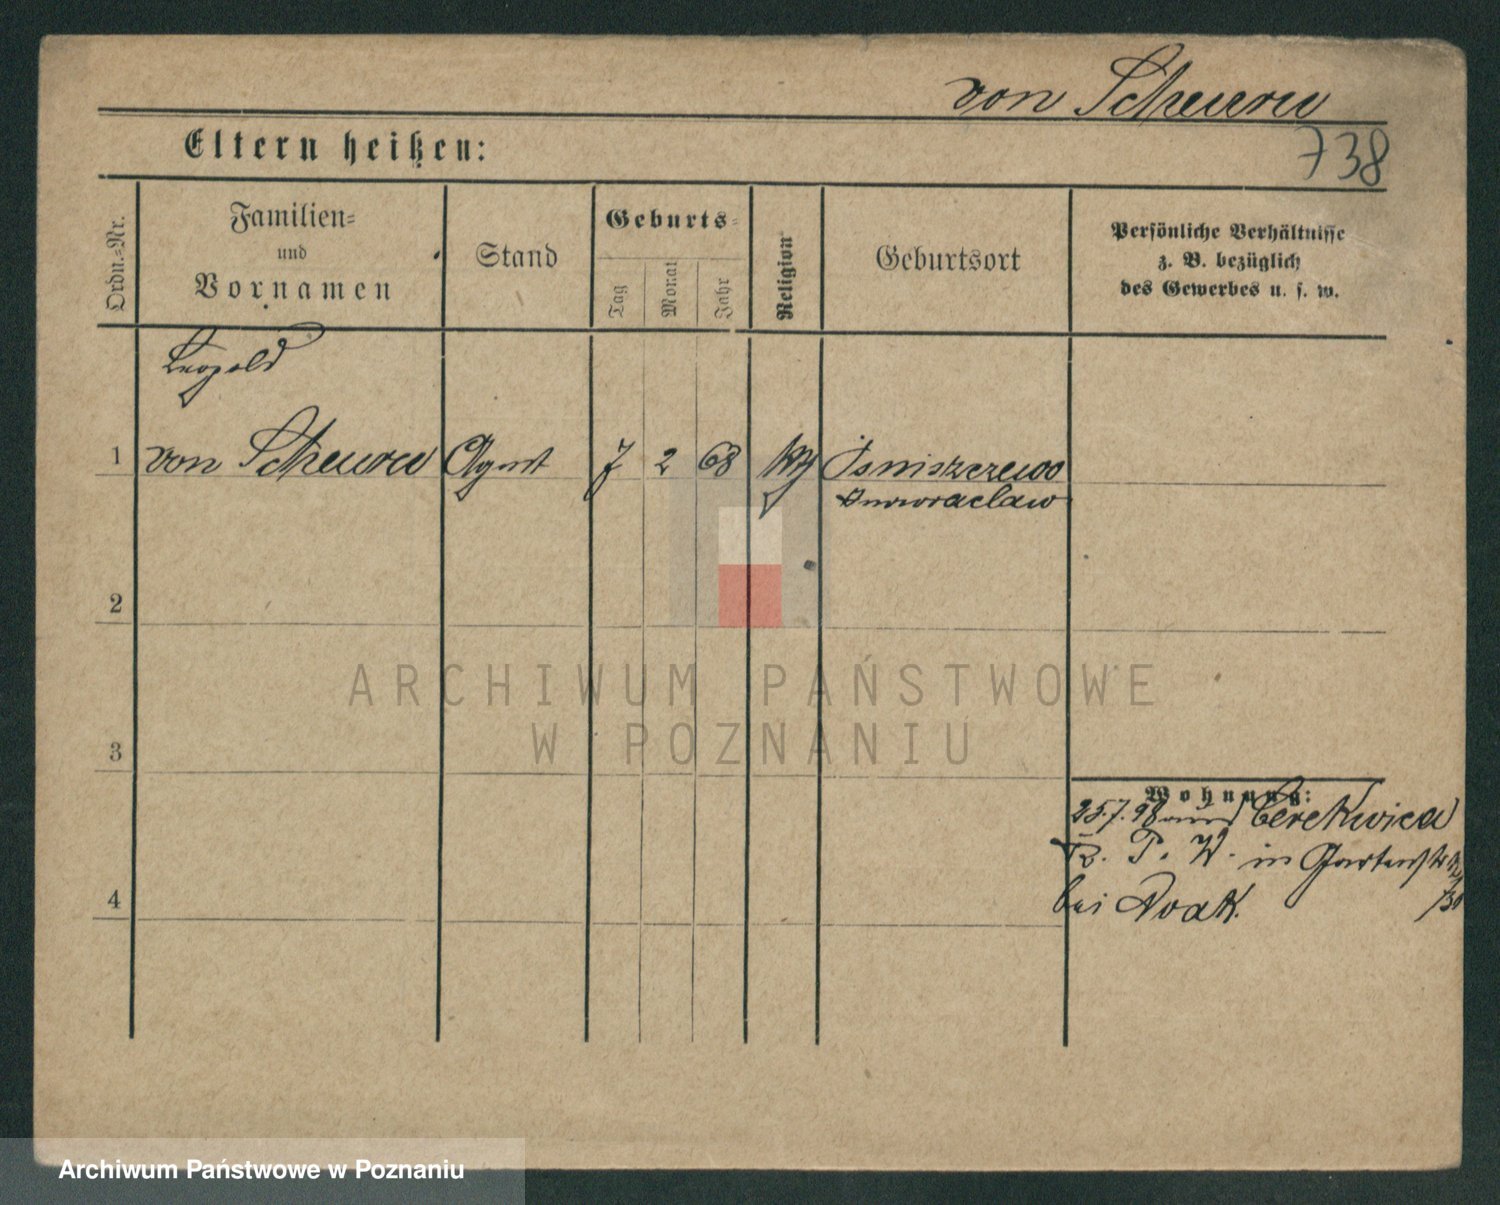 von Scheuren
738
Eltern heißen:
Ordn.-Nr.
Familien-
und
Vornamen
Stand
Geburts-
Tag
Monat
Jahr
Religion
Geburtsort
Persönliche Verhältnisse
z. B. bezüglich
des Gewerbes u. s. w.
Leopold
1 von Scheuren Agent 7 2 68
Inowraclaw
2
3
4
Wohnung:
25.7.98 Cerekwica
in Gartenstr.
bei Noak.
ARCHIWUM PAŃSTWOWE
W POZNANIU
Archiwum Państwowe w Poznaniu